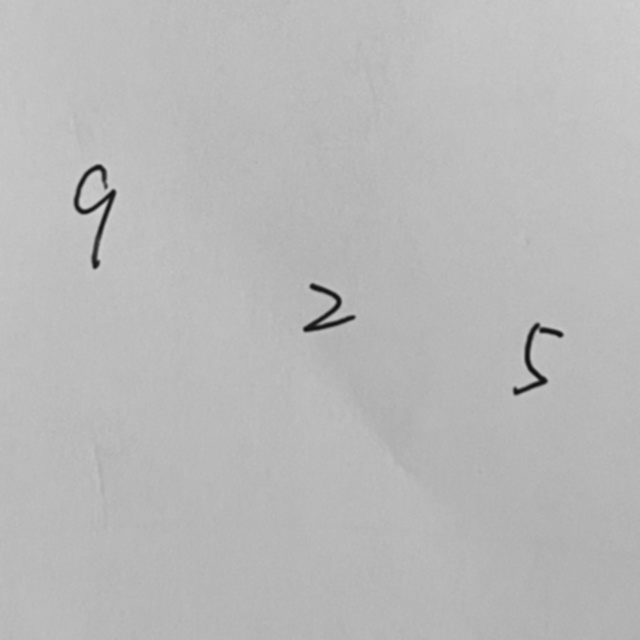 9 2 5